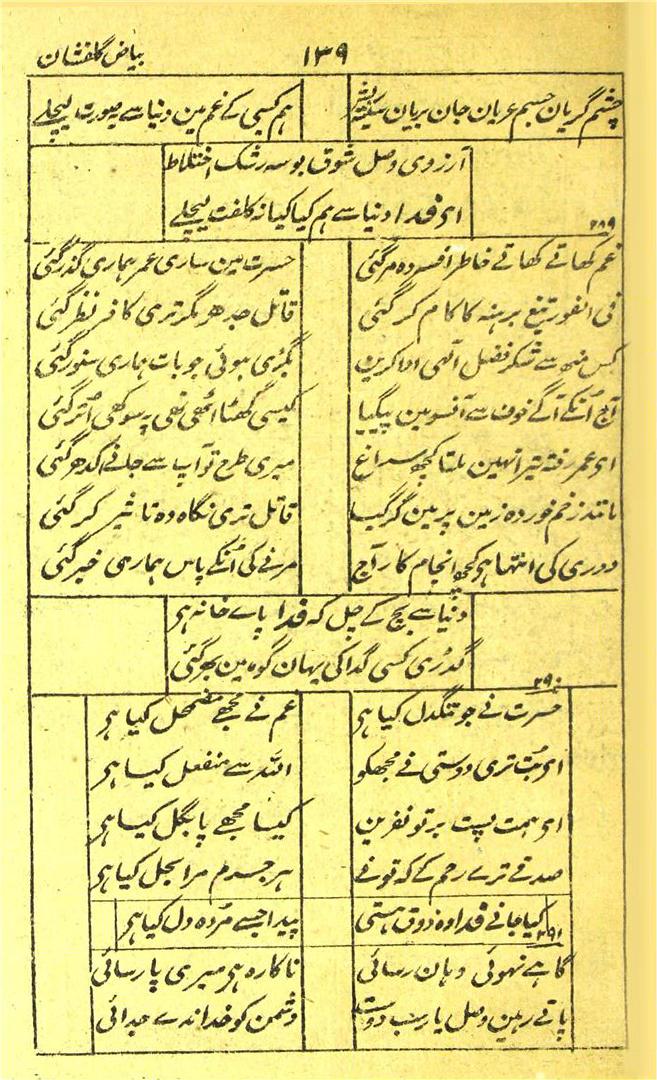 بیاض گلفشان ۱۳۹
چشم گریان جسم عریان جان بریان سینہ ہم کسی کے غم مین دنیا سے یہ صورت لیچلے
آرزوی وصل شوق بوسہ رشک اختلاط
ای فدا دنیا سے ہم کیا کیا نہ کلفت لیچلے
۲۸۹
غم کھاتے کھاتے خاطر افسردہ مر گئی حسرت مین ساری عمر ہماری گذر گئی
فی الفور تیغ برہنہ کا کام کر گئی قاتل جدھر مگر تری کافر نظر گئی
کس منھ سے شکر فضل الٰہی ادا کرین بگڑی ہوئی جو بات ہماری سنور گئی
آج اُنکے آگے خوف سے آنسو مین پیگیا کیسی گھٹا اُٹھی تھی پہ سوکھی اُتر گئی
ای عمر رفتہ تیرا نہین ملتا کچھ سراغ میری طرح تو آپ سے جانے کدھر گئی
مانند زخم خوردہ زمین پر مین گر گیا قاتل تری نگاہ وہ تاثیر کر گئی
دوری کی انتہا ہو کچھ انجام کار آج مرنے کی اُنکے پاس ہماری خبر گئی
دنیا سے بچ کے چل کہ فدا پاے خانہ ہی
گدڑی کسی گدا کی یہان گوہ مین بھر گئی
۲۹۰
حسرت نے جو تنگدل کیا ہی غم نے مجھے مضمحل کیا ہی
ای بُت تری دوستی نے مجھکو اللہ سے منفعل کیا ہی
ای ہمت پست بر تو نفرین کیسا مجھے پا بگل کیا ہی
صدقے ترے رحم کے کہ تونے ہر جرم مرا بحل کیا ہی
کیا جانے فدا وہ ذوق ہستی پیدا جسے مُردہ دل کیا ہی
۲۹۱
گاہے نہوئی وہان رسائی ناکارہ ہی میری پارسائی
پاتے رہین وصل یار سب دوست دشمن کو خدا ندے جدائی